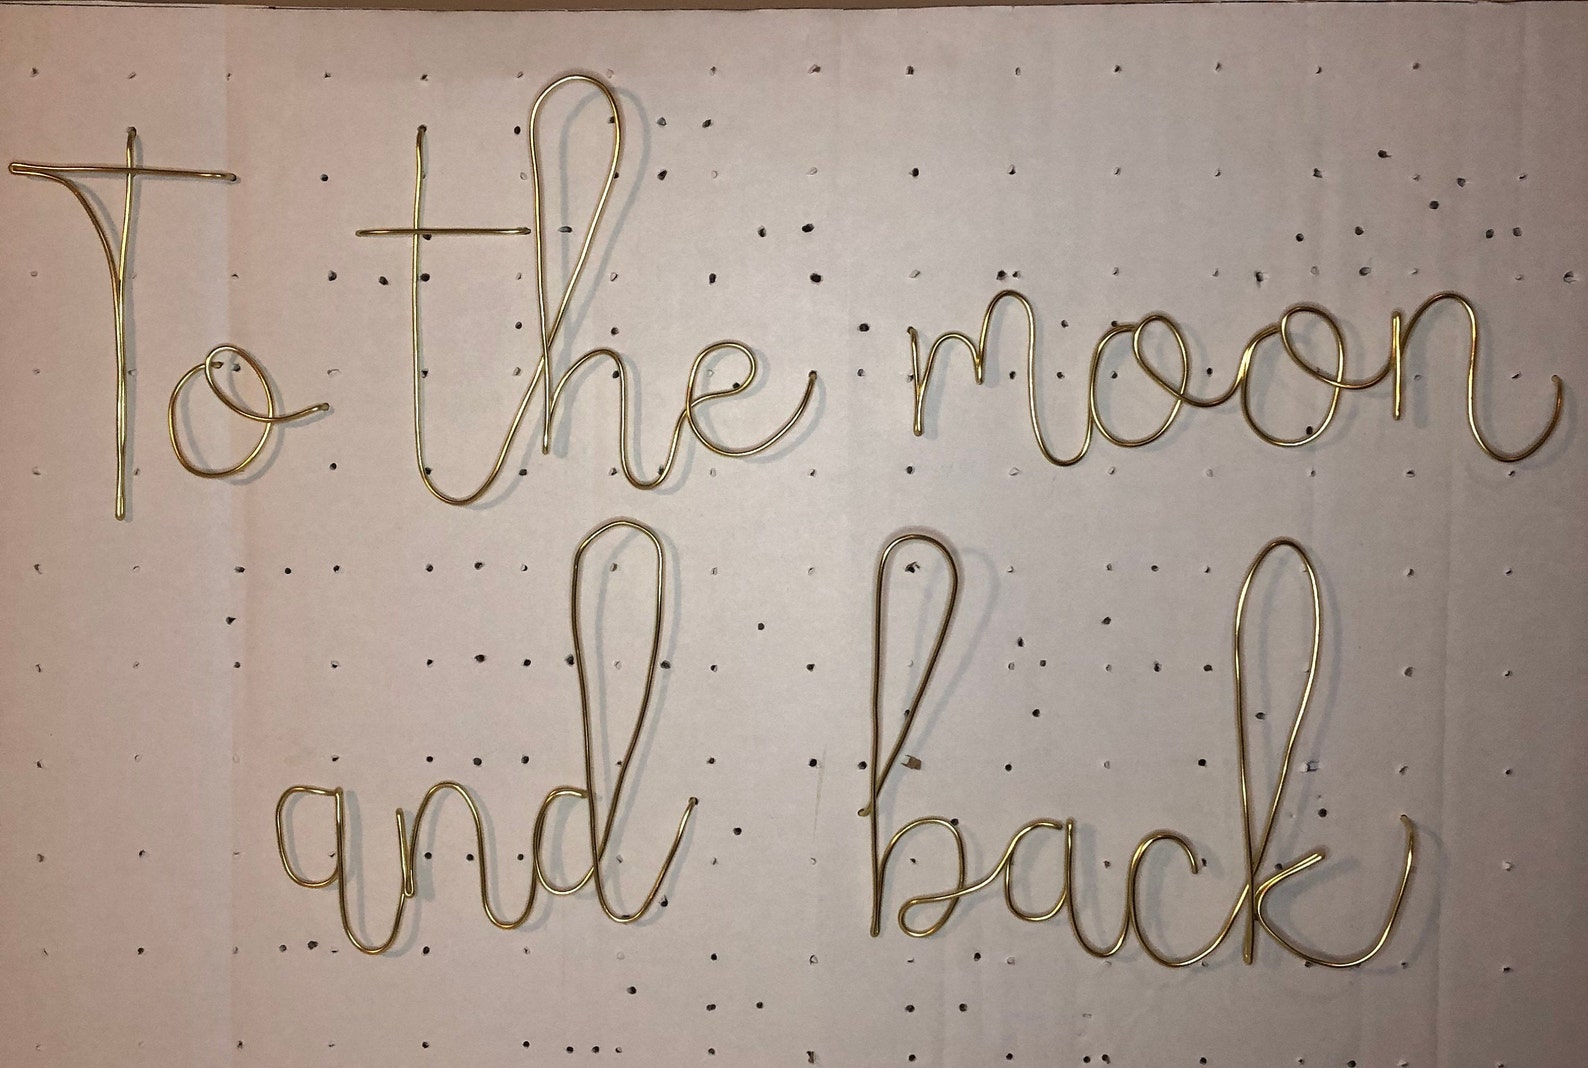 To the moon
and back